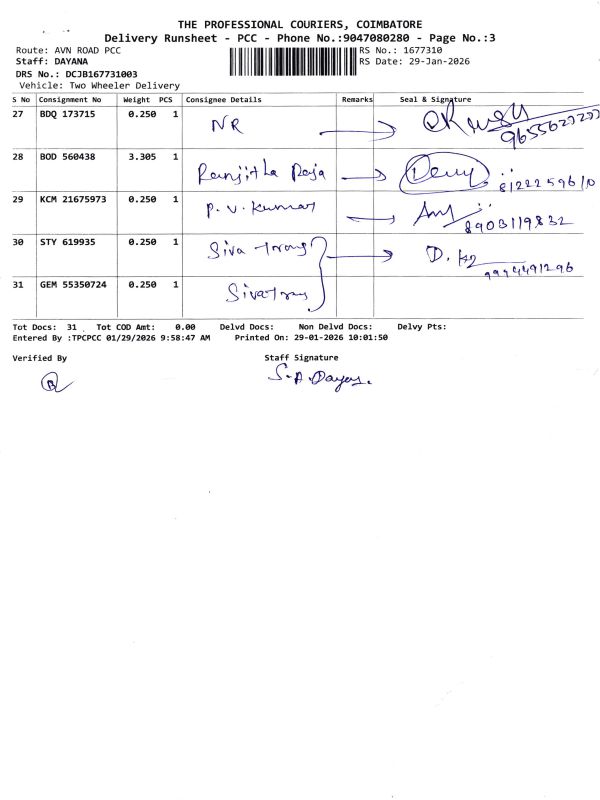 THE PROFESSIONAL COURIERS, COIMBATORE
Delivery Runsheet - PCC - Phone No.:9047080280 - Page No.:3
Route: AVN ROAD PCC
RS No.: 1677310
Staff: DAYANA
RS Date: 29-Jan-2026
DRS No.: DCJB167731003
Vehicle: Two Wheeler Delivery
S No Consignment No Weight PCS Consignee Details Remarks Seal & Signature
27 BDQ 173715 0.250 1 NR
28 BOD 560438 3.305 1 Ranjitha Raja
8122259610
29 KCM 21675973 0.250 1 P. V. Kumar
8903119832
30 STY 619935 0.250 1 Siva
9994491296
31 GEM 55350724 0.250 1
Tot Docs: 31 Tot COD Amt: 0.00 Delvd Docs: Non Delvd Docs: Delvy Pts:
Entered By :TPCPCC 01/29/2026 9:58:47 AM Printed On: 29-01-2026 10:01:50
Verified By Staff Signature
S.A. Dayana.